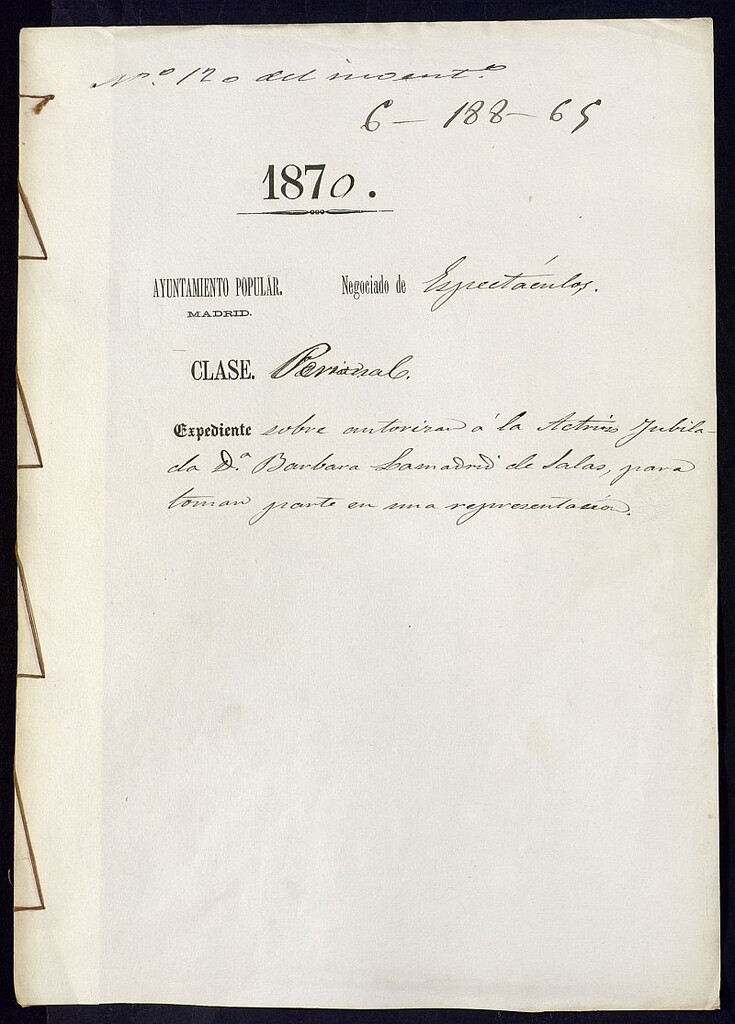 Nº 120 del invent.º
6 - 188 - 65
1870.
AYUNTAMIENTO POPULAR. Negociado de Espectáculos.
MADRID.
CLASE. Personal.
Expediente sobre autorizar á la Actriz Jubila-
da D.ª Barbara Lamadrid de Salas, para
tomar parte en una representación.